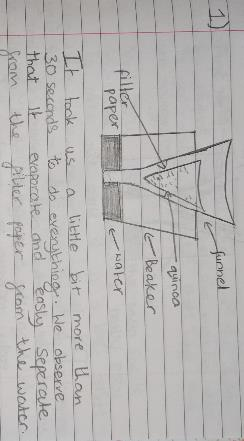 1)
funnel
filter
paper
quinoa
Beaker
water
It took us a little bit more than
30 seconds to do everything. We observe
that it evaporate and easly seperate
from the filter paper from the water.